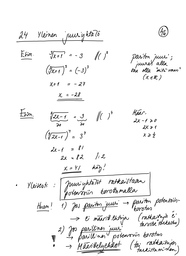 24 Yleinen juuriyhtälö
Esim ³√x+1 = -3 |( )³
(³√x+1)³ = (-3)³
x+1 = -27
x = -28
pariton juuri;
juuret alla
voi olla mitä vaan
(x∈ℝ)
Esim
(⁴√2x-1)⁴ = 3⁴
2x-1 = 81
2x = 82 |:2
x = 41
Määr.
2x-1 ≥ 0
2x ≥ 1
x ≥ ½
Yleisesti: Juuriyhtälöt ratkaistaan
potenssiin korottamalla
Huom! 1) Jos pariton juuri → pariton potenssiin
korotus
→ ei määrittelyehtoja
2) Jos parillinen juuri
→ parillinen potenssiin korotus
→ Määrittelyehdot